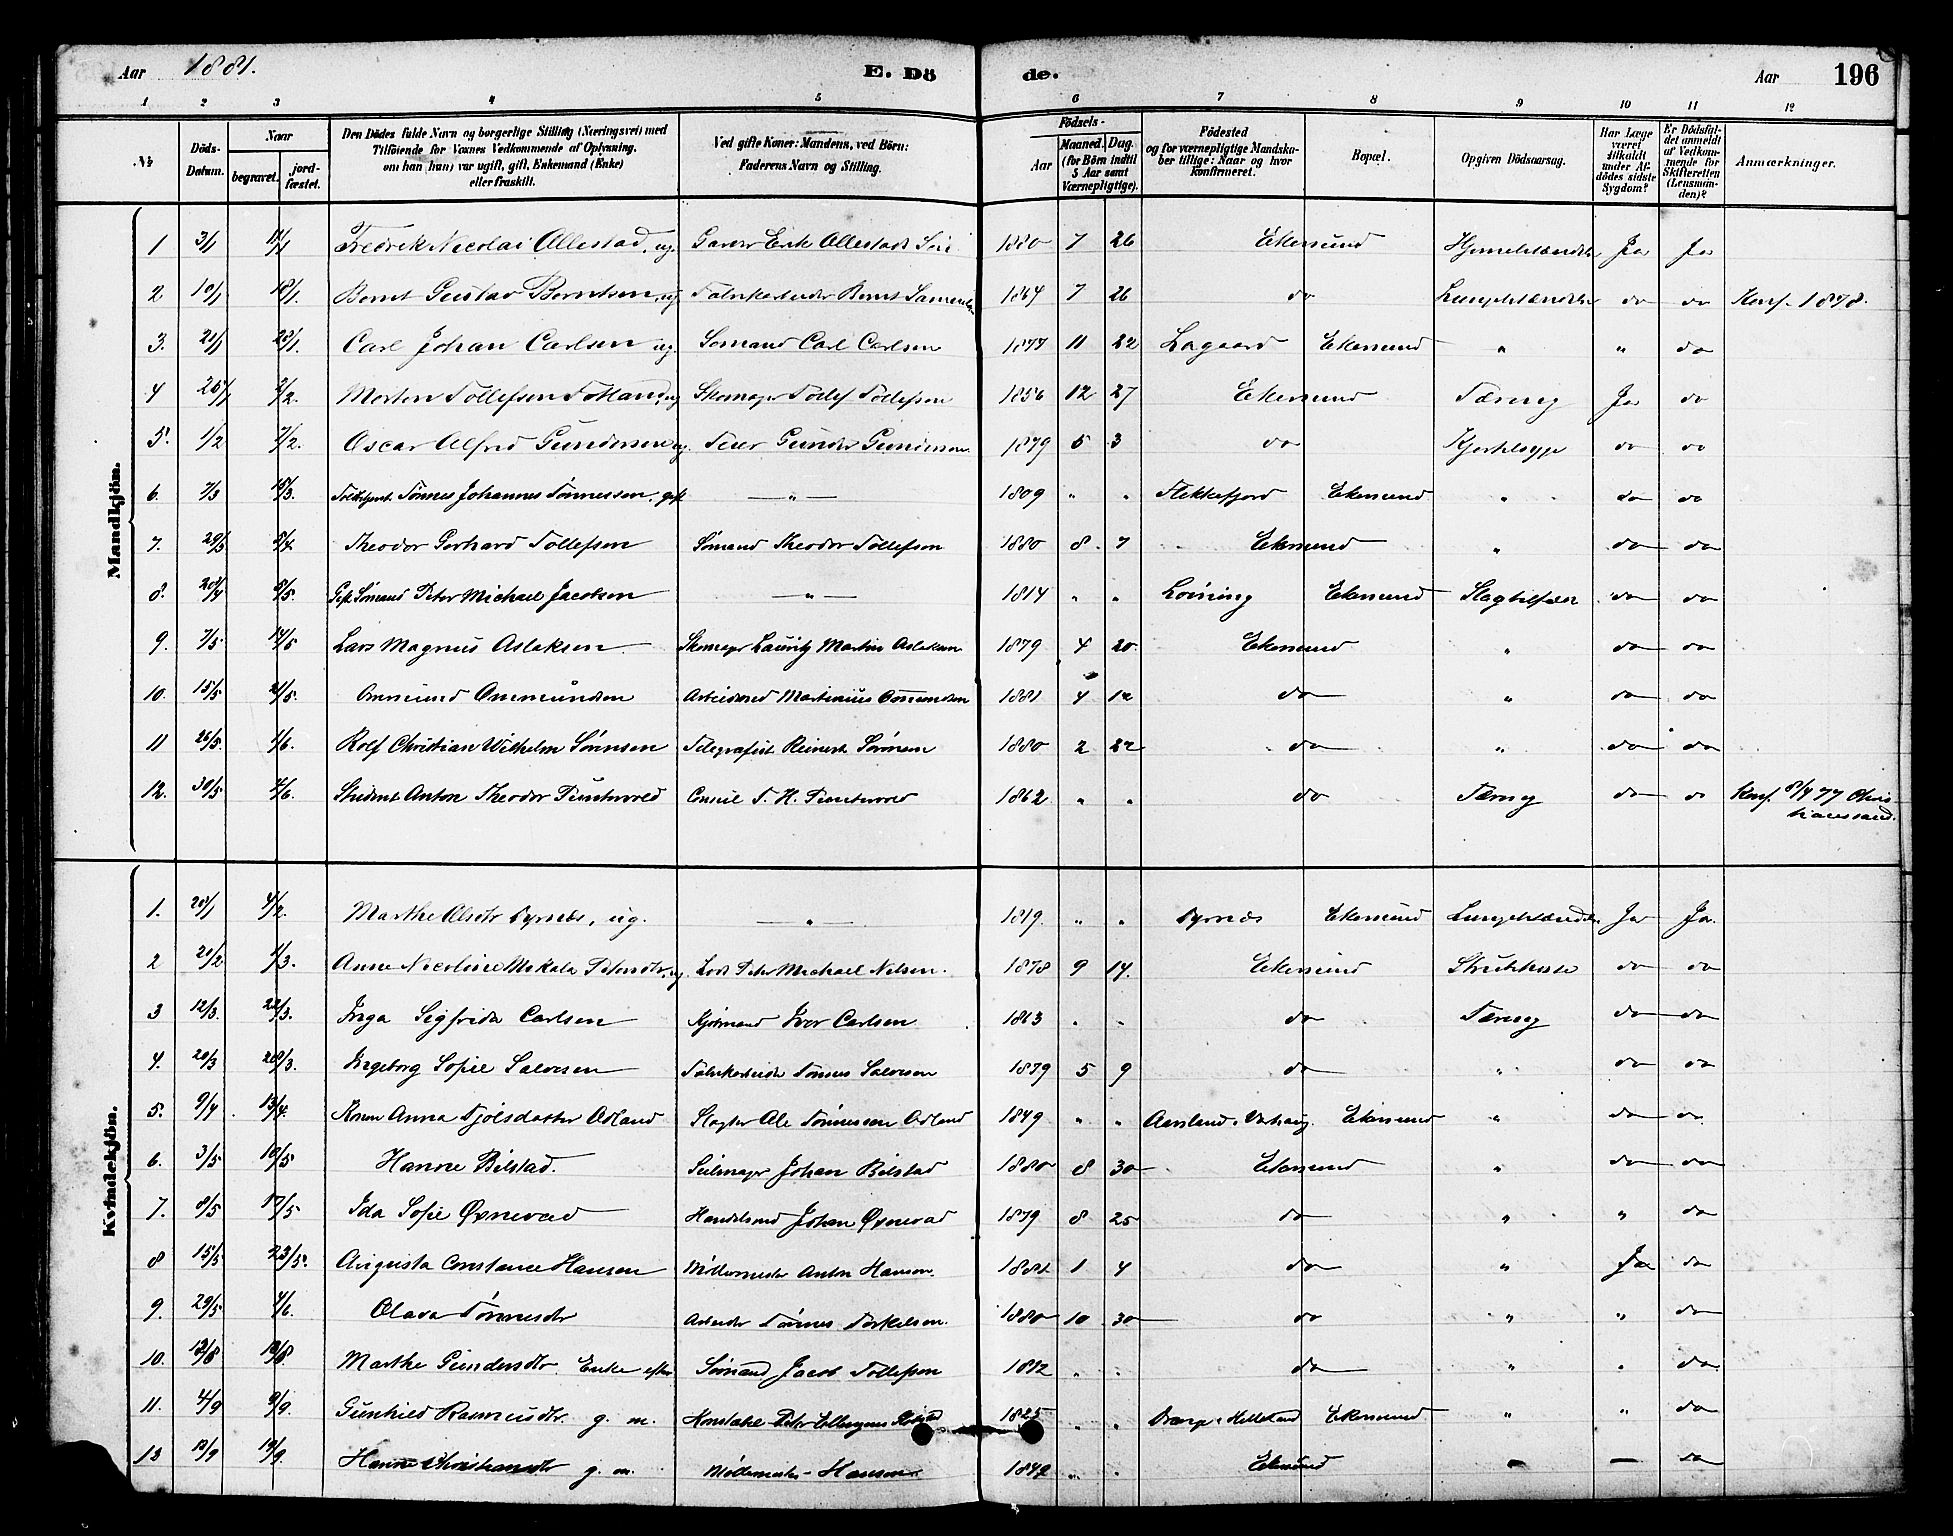 Aar 1881. E. Dö de. Aar 196
1 2 3 4 5 6 7 8 9 10 11 12
№ Döds-Datum. Naar begravet. jordfæstet. Den Dödes fulde Navn og borgerlige Stilling (Næringsvei) med Tilföiende for Voxnes Vedkommende af Oplysning, om han (hun) var ugift, gift, Enkemand (Enke) eller fraskilt. Ved gifte Koner: Mandens, ved Börn: Faderens Navn og Stilling. Födsels- Aar Maaned. Dag. (for Börn indtil 5 Aar samt Værnepligtige). Födested og for værnepligtige Mandskaber tillige: Naar og hvor konfirmeret. Bopæl. Opgiven Dödsaarsag. Har Læge været tilkaldt under Afdödes sidste Sygdom? Er Dödsfaldet anmeldt af Vedkommende for Skifteretten (Lensmanden)? Anmærkninger.
Mandkjön.
1 3/1 11/1 Fredrik Nicolai Ollestad, ug. Garver Erik Ollestads Søn 1880 7 26 Ekersund Ja Ja
2 10/1 18/1. Bernt Gustav Berntsen, ug. Fabrikarbeider Bernt 1864 7 26 do do do Konf. 1878.
3. 21/1 28/1. Carl Johan Carlsen ug. Sømand Carl Carlsen 1877 11 22 Lagaard Ekersund " " do
4 26/1 2/2. Morten Tollefsen ug Skomager Tollef Tollefsen 1856 12 27 Ekersund Tæring Ja do
5. 1/2 7/2. Oscar Alfred Gundersen ug. Feier Gunder Gundersen 1879 5 3 do do do
6. 7/3 15/3. Tønnes Johannes Tønnessen, gift — " — 1809 " " Flekkefjord Ekersund " do do
7. 29/3 5/4. Theodor Gerhard Tollefsen Sømand Theodor Tollefsen 1880 8 7 Ekersund " do do
8. 29/4 5/5. Gift Sømand Peter Michael Jacobsen — " — 1814 " " Løining Ekersund Slagtilfælde do do
9. 7/5 14/5 Lars Magnus Aslaksen Skomager Lauritz Martin Aslaksen 1879 4 20 Ekersund " do do
10. 15/5 21/5. Ommund Ommundsen Arbeidsmd Martinius Ommundsen 1881 4 12 do " do do
11 26/5. 1/6. Rolf Christian Wilhelm Sørensen Telegrafist Reinert Sørensen 1880 2 22 do " do do
12. 30/5 4/6. Student Anton Theodor Puntervold Consul T. H. Puntervold 1862 " " do Tæring do do Konf. 8/4 77 Christianssand.
Kvindekjön.
1. 28/1 4/2. Marthe Olsdtr , ug. — " — 1819. " " Ekersund Ja Ja.
2 20/2 1/3. Anne Nicoline Mikala Petersdtr, ug Lods Peter Michael Nilsen. 1878 9 14. Ekersund Strubehoste do do
3 12/3. 22/3. Inga Sigfrida Carlsen Kjøbmand Iver Carlsen 1863 " " do Tæring do do
4. 20/3 28/3. Ingeborg Sofie Salvesen Fabrikarbeider Tønnes Salvesen 1879 5 9 do " do do
5. 9/4 13/4. Konen Anna Kjølsdatter Odland Slagter Ole Tønnessen Odland 1849 " " Ekersund " do do
6. 3/5 10/5 Hanne Bilstad. Seilmager Johan Bilstad 1880 8 30 Ekersund " do do
7. 8/5 17/5. Ida Sofie Øxnevad Handelsmd Johan Øxnevad 1879 8 25 do " " do
8 15/5 23/5. Augusta Constance Hansen Anton Hansen. 1881 1 4 do " Ja do
9. 29/5 4/6. Olava Tønnesdtr Arbeider Tønnes Torkelsen. 1880 10 30 do " " do
10. 12/8 18/8. Marthe Gundersdtr. Enke efter Sømand Jacob Tollefsen 1812 " " do " " do
11. 4/9 9/9. Gunhild Rasmusdtr. g. m. Peter 1825 " " Helleland Ekersund " " do
13 12/9 19/9. Hanne Christiansdtr g. m. Hansen 1842 " " Ekersund " — do